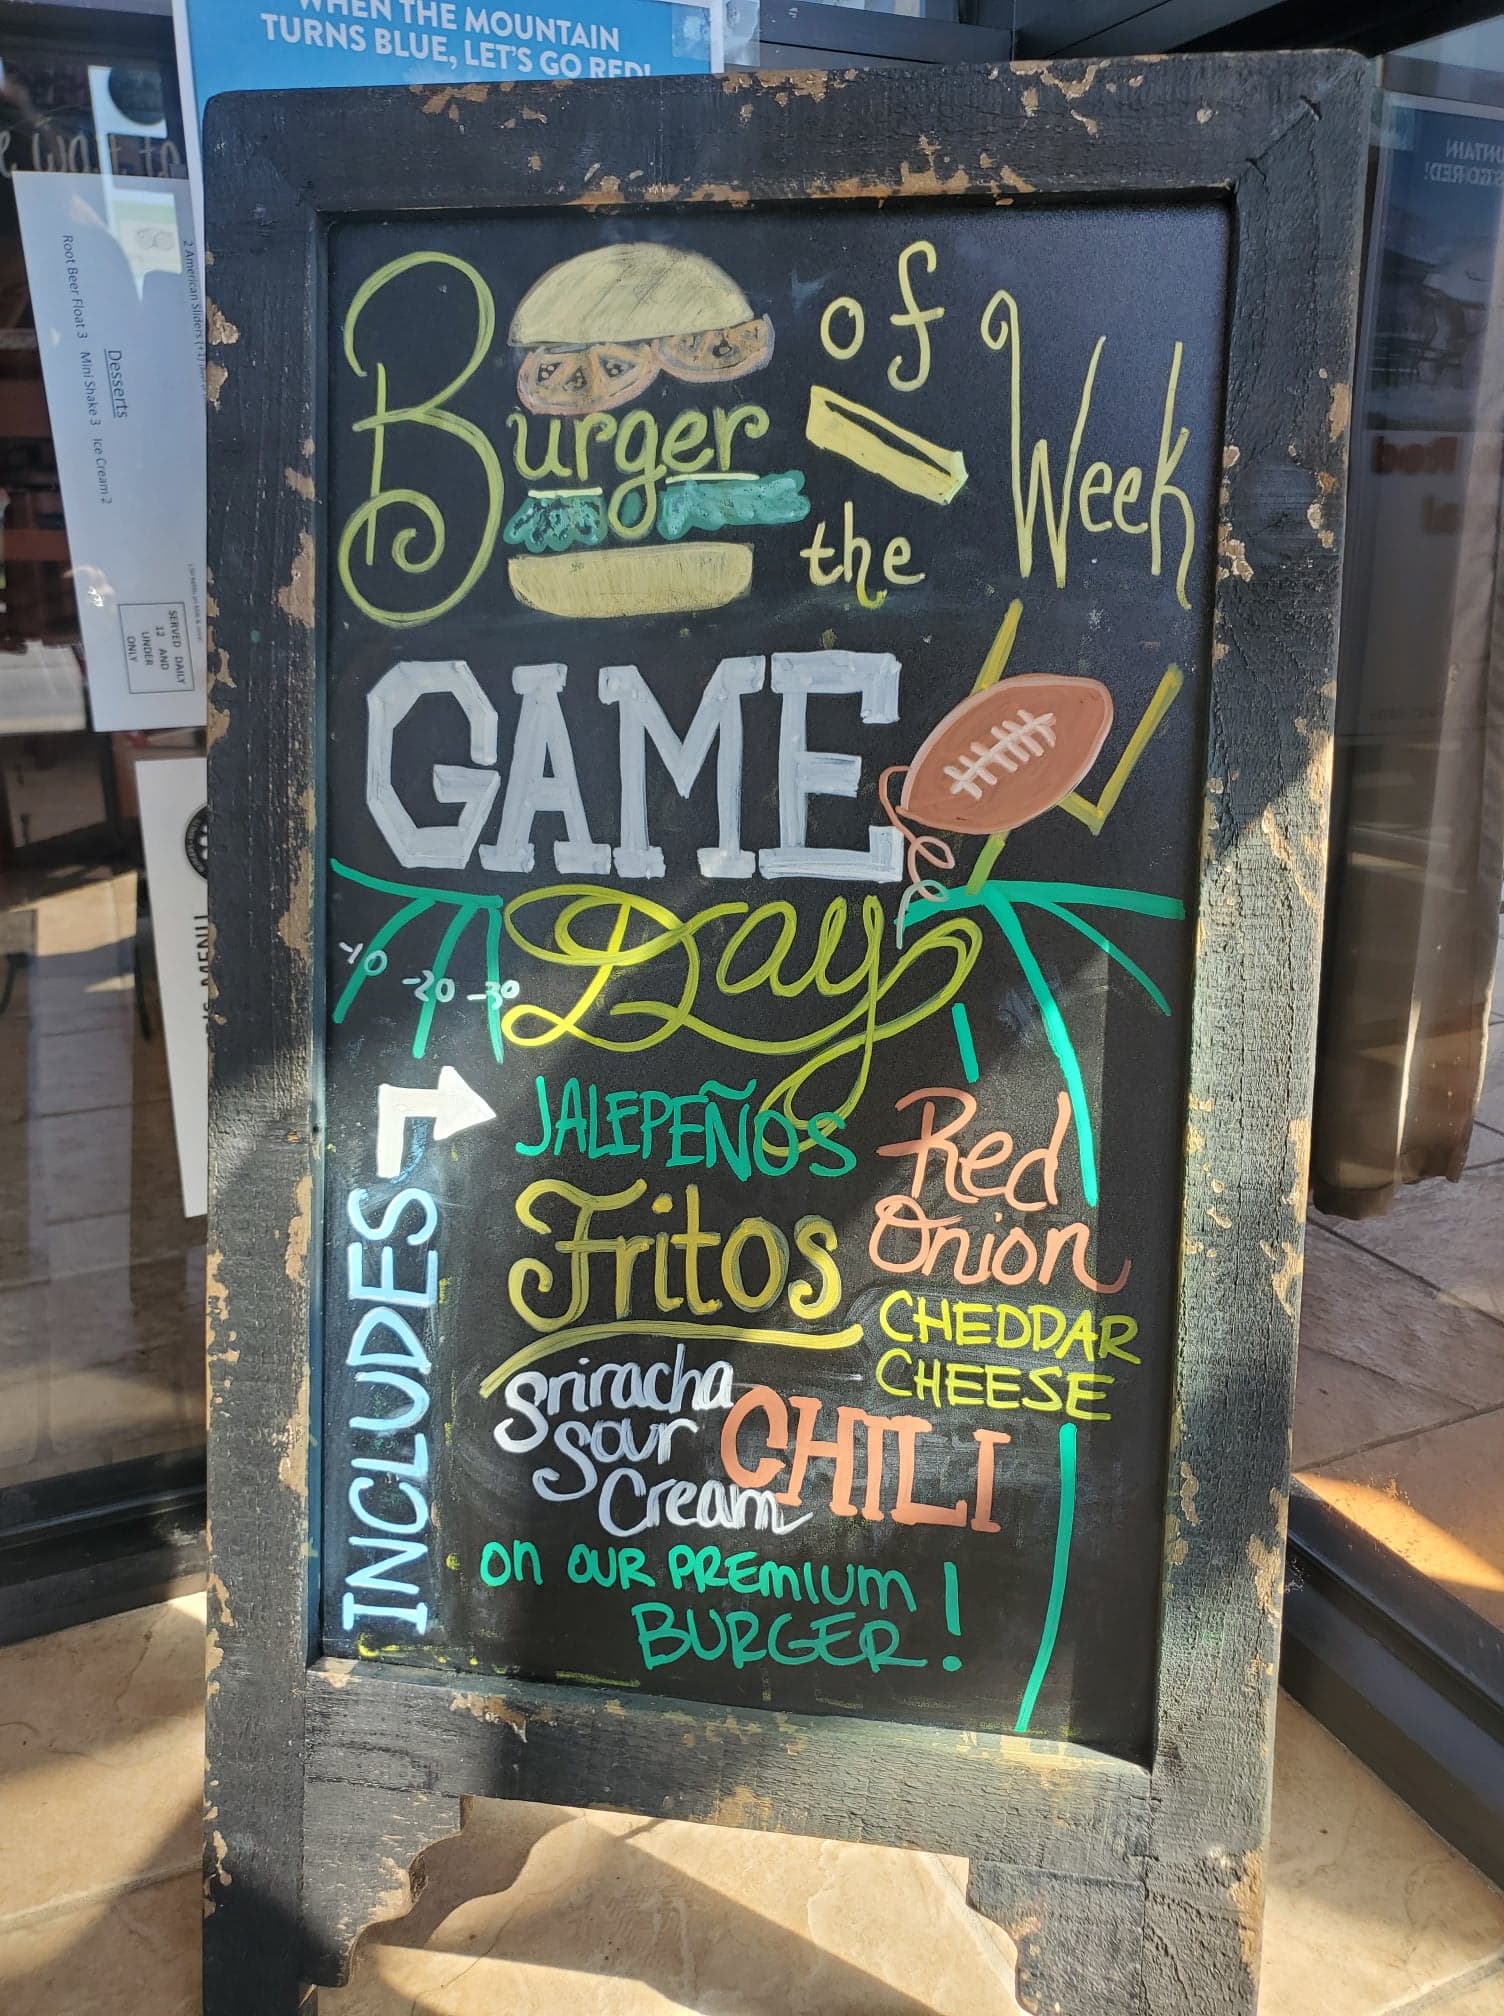 WHEN THE MOUNTAIN
TURNS BLUE, LET'S GO RED!
Burger of the Week
GAME
Day
-10 -20 -30
INCLUDES
JALEPEÑOS
Red
Onion
Fritos
CHEDDAR
CHEESE
Sriracha
Sour
Cream
CHILI
on OUR PREMIUM
BURGER!
Desserts
Root Beer Float 3 Mini Shake 3 Ice Cream 2
SERVED DAILY
12 AND
UNDER
ONLY
MENU